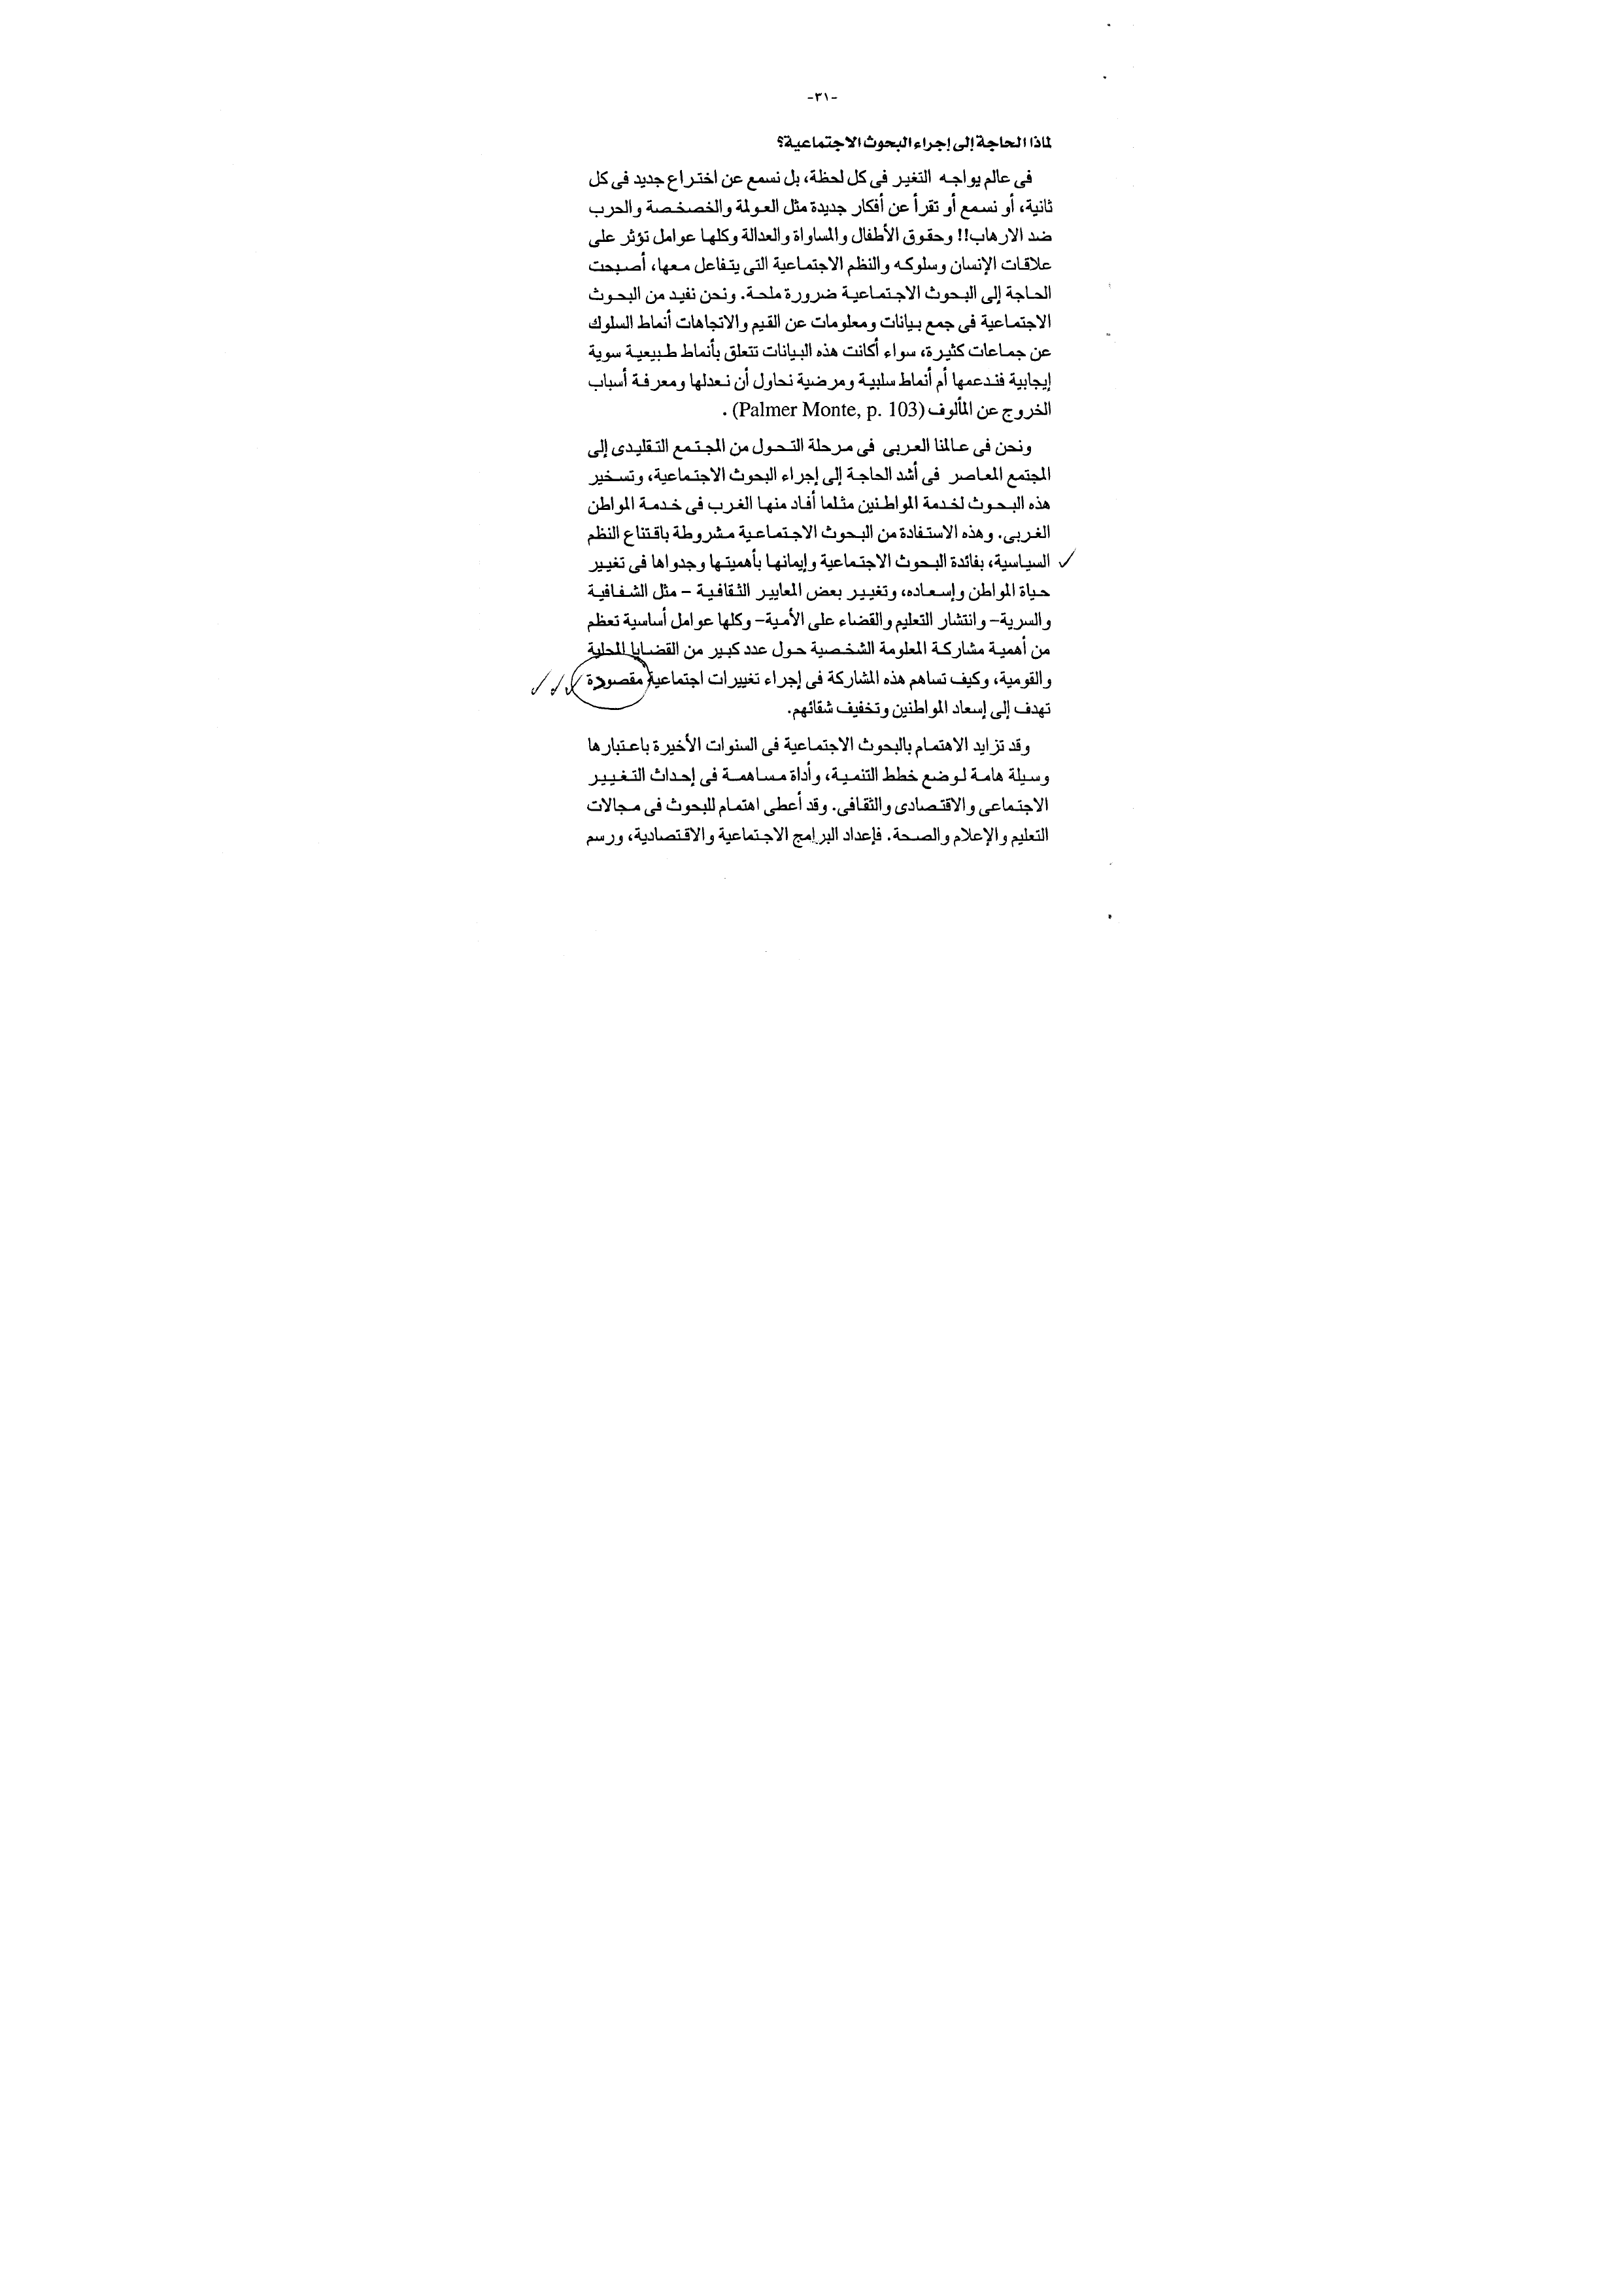 -٣١-
لماذا الحاجة إلى إجراء البحوث الاجتماعية؟
فى عالم يواجه التغير فى كل لحظة، بل نسمع عن اختراع جديد فى كل
ثانية، أو نسمع أو تقرأ عن أفكار جديدة مثل العولمة والخصخصة والحرب
ضد الارهاب!! وحقوق الأطفال والمساواة والعدالة وكلها عوامل تؤثر على
علاقات الإنسان وسلوكه والنظم الاجتماعية التى يتفاعل معها، أصبحت
الحاجة إلى البحوث الاجتماعية ضرورة ملحة. ونحن نفيد من البحوث
الاجتماعية فى جمع بيانات ومعلومات عن القيم والاتجاهات أنماط السلوك
عن جماعات كثيرة، سواء أكانت هذه البيانات تتعلق بأنماط طبيعية سوية
إيجابية فندعمها أم أنماط سلبية ومرضية نحاول أن نعدلها ومعرفة أسباب
الخروج عن المألوف (Palmer Monte, p. 103) .
ونحن فى عالمنا العربى فى مرحلة التحول من المجتمع التقليدى إلى
المجتمع المعاصر فى أشد الحاجة إلى إجراء البحوث الاجتماعية، وتسخير
هذه البحوث لخدمة المواطنين مثلما أفاد منها الغرب فى خدمة المواطن
الغربى. وهذه الاستفادة من البحوث الاجتماعية مشروطة باقتناع النظم
السياسية، بفائدة البحوث الاجتماعية وإيمانها بأهميتها وجدواها فى تغيير
حياة المواطن وإسعاده، وتغيير بعض المعايير الثقافية - مثل الشفافية
والسرية- وانتشار التعليم والقضاء على الأمية- وكلها عوامل أساسية تعظم
من أهمية مشاركة المعلومة الشخصية حول عدد كبير من القضايا المحلية
والقومية، وكيف تساهم هذه المشاركة فى إجراء تغييرات اجتماعية مقصودة
تهدف إلى إسعاد المواطنين وتخفيف شقائهم.
وقد تزايد الاهتمام بالبحوث الاجتماعية فى السنوات الأخيرة باعتبارها
وسيلة هامة لوضع خطط التنمية، وأداة مساهمة فى إحداث التغيير
الاجتماعى والاقتصادى والثقافى. وقد أعطى اهتمام للبحوث فى مجالات
التعليم والإعلام والصحة. فإعداد البرامج الاجتماعية والاقتصادية، ورسم